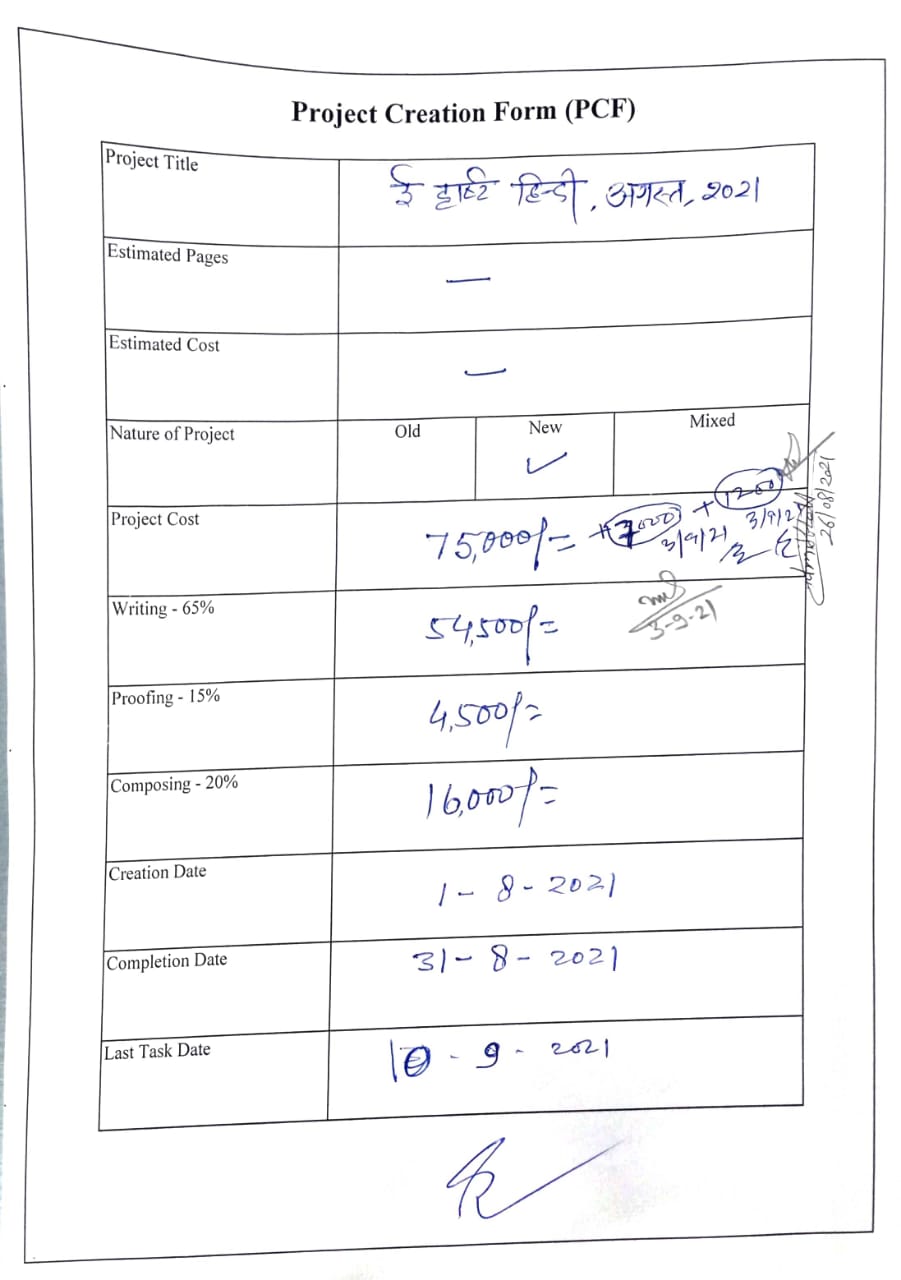 Project Creation Form (PCF)
Project Title
ई हार्ट हिन्दी, अगस्त, 2021
Estimated Pages
—
Estimated Cost
—
Nature of Project Old New Mixed
✓
26/08/2021
Project Cost
75,000/= + 7000 + 1200
3/9/21 3/9/21
Writing - 65%
54,500/=
3-9-21
Proofing - 15%
4,500/=
Composing - 20%
16,000/=
Creation Date
1 - 8 - 2021
Completion Date
31 - 8 - 2021
Last Task Date
10 - 9 - 2021